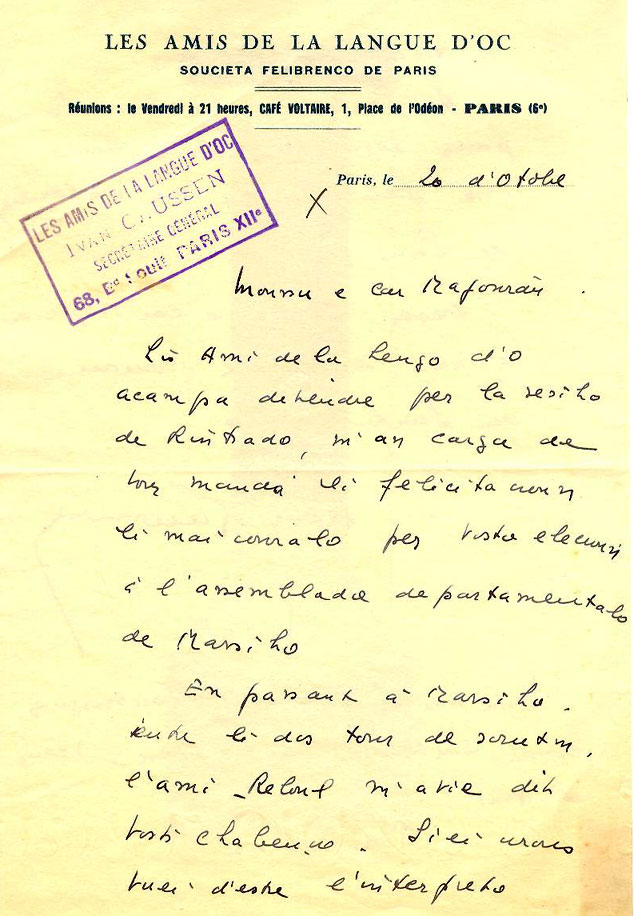 LES AMIS DE LA LANGUE D'OC
SOUCIETA FELIBRENCO DE PARIS
Réunions : le Vendredi à 21 heures, CAFÉ VOLTAIRE, 1, Place de l'Odéon - PARIS (6e)
LES AMIS DE LA LANGUE D'OC
IVAN
SECRÉTAIRE GÉNÉRAL
68, Bd PARIS XIIe
Paris, le 20 d'Otobe
Moussu e car Majourau
Lis Ami de la Lengo d'O
acampa divèndre per la sesiho
de Rintrado, m'an carga de
vous manda li felicitacioun
li mai couralo per vosto eleicioun
à l'assemblado departamentalo
de Marsiho
En passant à Marsiho,
entre li dos tour de scrutin,
l'ami Reboul m'avié di
vosti chabenço. Siéu urous
vuei d'estre l'interpreto